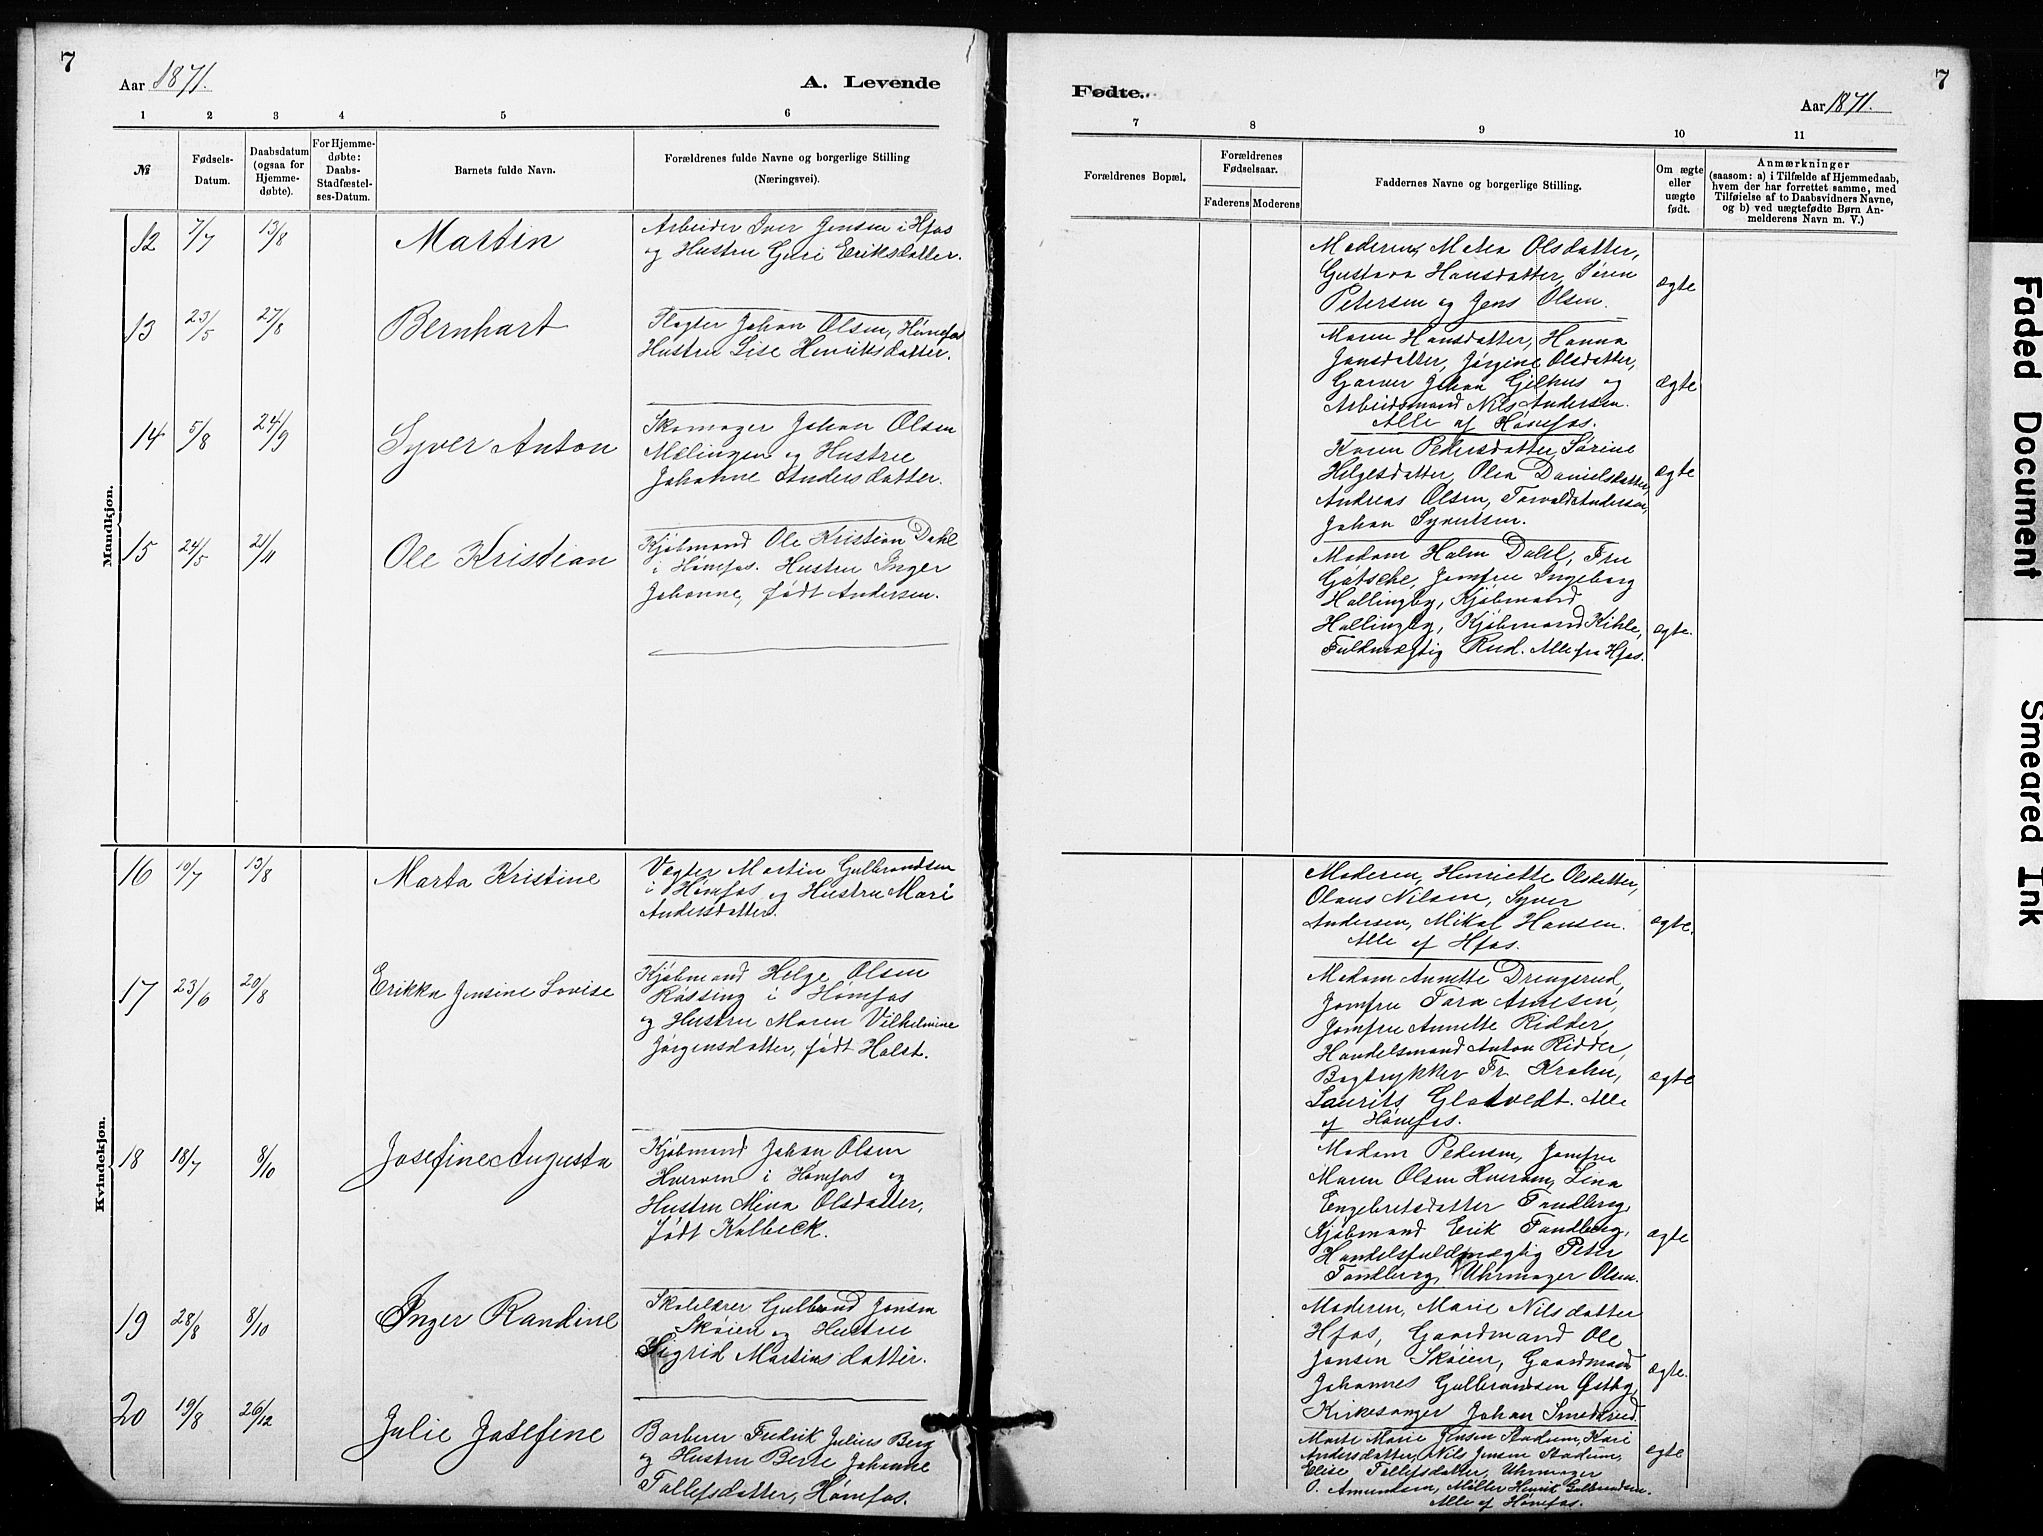 7
Aar 1871.
A. Levende
1 2 3 4 5 6
№
Fødsels-
Datum.
Daabsdatum
(ogsaa for
Hjemme-
døbte).
For Hjemme-
døbte:
Daabs-
Stadfæstel-
ses-Datum.
Barnets fulde Navn.
Forældrenes fulde Navne og borgerlige Stilling
(Næringsvei).
Mandkjøn.
12 7/7 13/8 Martin
Arbeider Iver Jensen i Hfos
og Hustru Guri Eriksdatter.
13 23/5 27/8 Bernhart
Slagter Johan Olsen, Hønefos
Hustru Lise Henriksdatter.
14 5/8 24/9 Syver Anton
Skomager Johan Olsen
Mælingen og Hustru
Johanne Andersdatter.
15 24/5 21/11 Ole Kristian
Kjøbmand Ole Kristian Dahl
i Hønefos. Hustru Inger
Johanne, født Andersen.
Kvindekjøn.
16 10/7 13/8 Marta Kristine
Vegter Martin Gulbrandsen
i Hønefos og Hustru Mari
Andersdatter.
17 23/6 20/8 Erikka Jensine Lovise
Kjøbmand Helge Olsen
Røssing i Hønefos
og Hustru Maren Vilhelmine
Jørgensdatter, født Holst.
18 18/7 8/10 Josefine Augusta
Kjøbmand Johan Olsen
Hverven i Hønefos og
Hustru Mina Olsdatter,
født Kolbeck.
19 28/8 8/10 Inger Randine
Skolelærer Gulbrand Jonsen
Skøien og Hustru
Sigrid Martinsdatter.
20 19/8 26/12 Julie Josefine
Barberer Fredrik Julius Berg
og Hustru Berte Johanne
Tollefsdatter, Hønefos.
Fødte.
7
Aar 1871.
7 8 9 10 11
Forældrenes Bopæl.
Forældrenes
Fødselsaar.
Faderens Moderens
Faddernes Navne og borgerlige Stilling.
Om ægte
eller
uægte
født.
Anmærkninger
(saasom: a) i Tilfælde af Hjemmedaab,
hvem der har forrettet samme, med
Tilføielse af to Daabsvidners Navne,
og b) ved uægtefødte Børn An-
melderens Navn m. V.)
Moderen, Matea Olsdatter,
Gustava Hansdatter, Søren
Petersen og Jens Olsen.
ægte
Maren Hansdatter, Hanna
Jonsdatter, Jørgine Olsdatter,
Garver Johan Gjelhus og
Arbeidsmand Nils Andersen.
Alle af Hønefos.
ægte
Karen Pedersdatter, Sørine
Helgesdatter, Olea Danielsdatter,
Andreas Olsen, Torvald Andersen,
Johan Syvertsen.
ægte
Madam Halm Dahl, Fru
Gøtsche, Jomfru Ingeborg
Hallingby, Kjøbmand
Hallingby, Kjøbmand Kihle,
Fuldmægtig Rud. Alle fra Hfos.
ægte.
Moderen, Henriette Olsdatter,
Olaus Nilsen, Syver
Andersen, Mikal Hansen.
Alle af Hfos.
ægte.
Madam Annette Drengsrud,
Jomfru Tora Arnesen,
Jomfru Annette Ridder,
Handelsmand Anton Ridder,
Bogtrykker Fr. Krohn,
Laurits Glatvedt. Alle
af Hønefos.
ægte
Madam Pedersen, Jomfru
Maren Olsen Hverven, Lina
Engebretsdatter Tandberg,
Kjøbmand Erik Tandberg,
Handelsfuldmægtig Peter
Tandberg, Uhrmager Olsen.
ægte
Moderen, Marie Nilsdatter
Hfos, Gaardmand Ole
Jonsen Skøien, Gaardmand
Johannes Gulbrandsen Østby,
Kirkesanger Johan Smedsrud.
ægte.
Marte Marie Jensen Stadum, Kari
Andersdatter, Nils Jensen Stadum,
Elise Tollefsdatter, Uhrmager
O. Amundsen, Møller Henrik Gulbrandsen.
Alle af Hønefos.
ægte
Faded Document
Smeared Ink